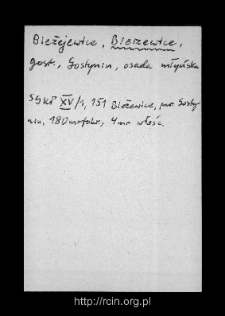 Bieżejewice, Bierzewice,
gost., Gostynin, osada młyńska
SGKP XV/1, 151 Bieżewice, pow. Gosty-
nin, 180 mr folw., 4 mr włość.
http://rcin.org.pl